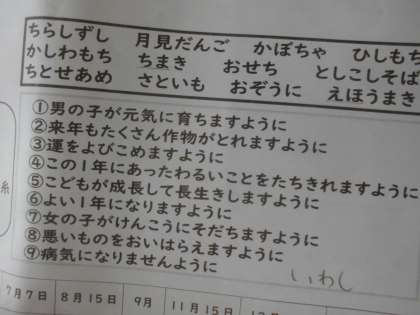 ちらしずし 月見だんご かぼちゃ ひしもち
かしわもち ちまき おせち としこしそば
ちとせあめ さといも おぞうに えほうまき
①男の子が元気に育ちますように
②来年もたくさん作物がとれますように
③運をよびこめますように
④この1年にあったわるいことをたちきれますように
⑤こどもが成長して長生きしますように
⑥よい1年になりますように
⑦女の子がけんこうにそだちますように
⑧悪いものをおいはらえますように
⑨病気になりませんように
いわし
糸
7月7日 8月15日 9月 11月15日